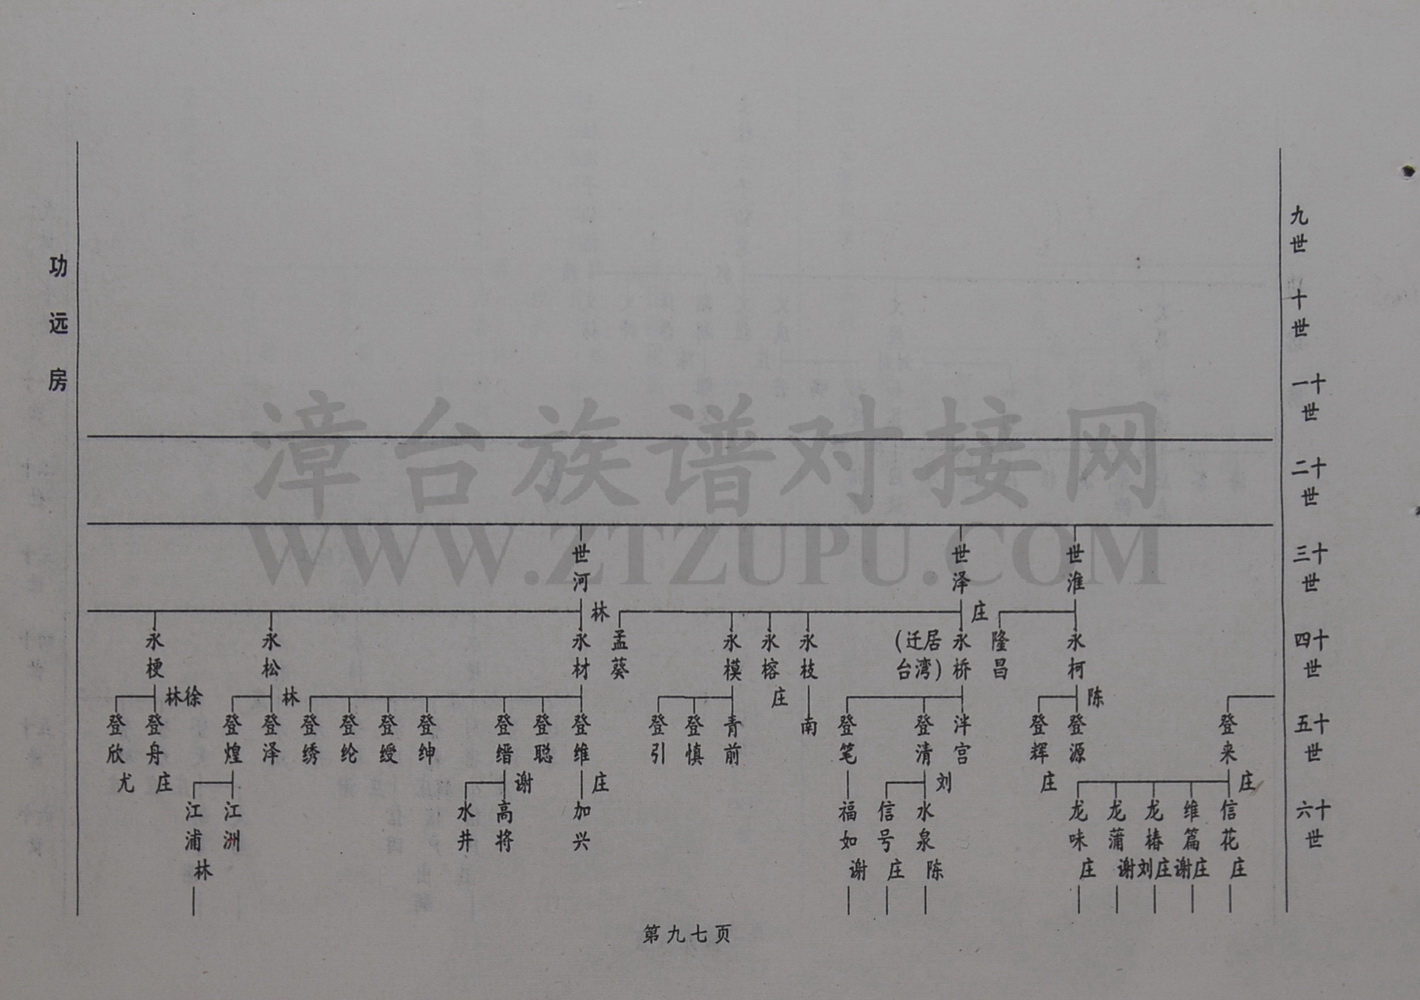 功远房
九世
十世
十一世
十二世
十三世
十四世
十五世
十六世
世淮
世泽
世河
永柯
陈
隆昌
永桥
庄
(迁居台湾)
永枝
永榕
庄
永模
孟葵
永材
林
永松
林
永梗
林徐
登来
庄
登源
登辉
庄
泮宫
登清
刘
登笔
南
青前
登慎
登引
登维
庄
登聪
登缙
谢
登绅
登绶
登纶
登绣
登泽
登煌
登舟
庄
登欣
尤
信花
庄
维篇
谢庄
龙椿
刘庄
龙蒲
谢
龙味
庄
水泉
陈
信号
庄
福如
谢
加兴
高将
水井
江洲
江浦
林
第九七页
漳台族谱对接网
WWW.ZTZUPU.COM